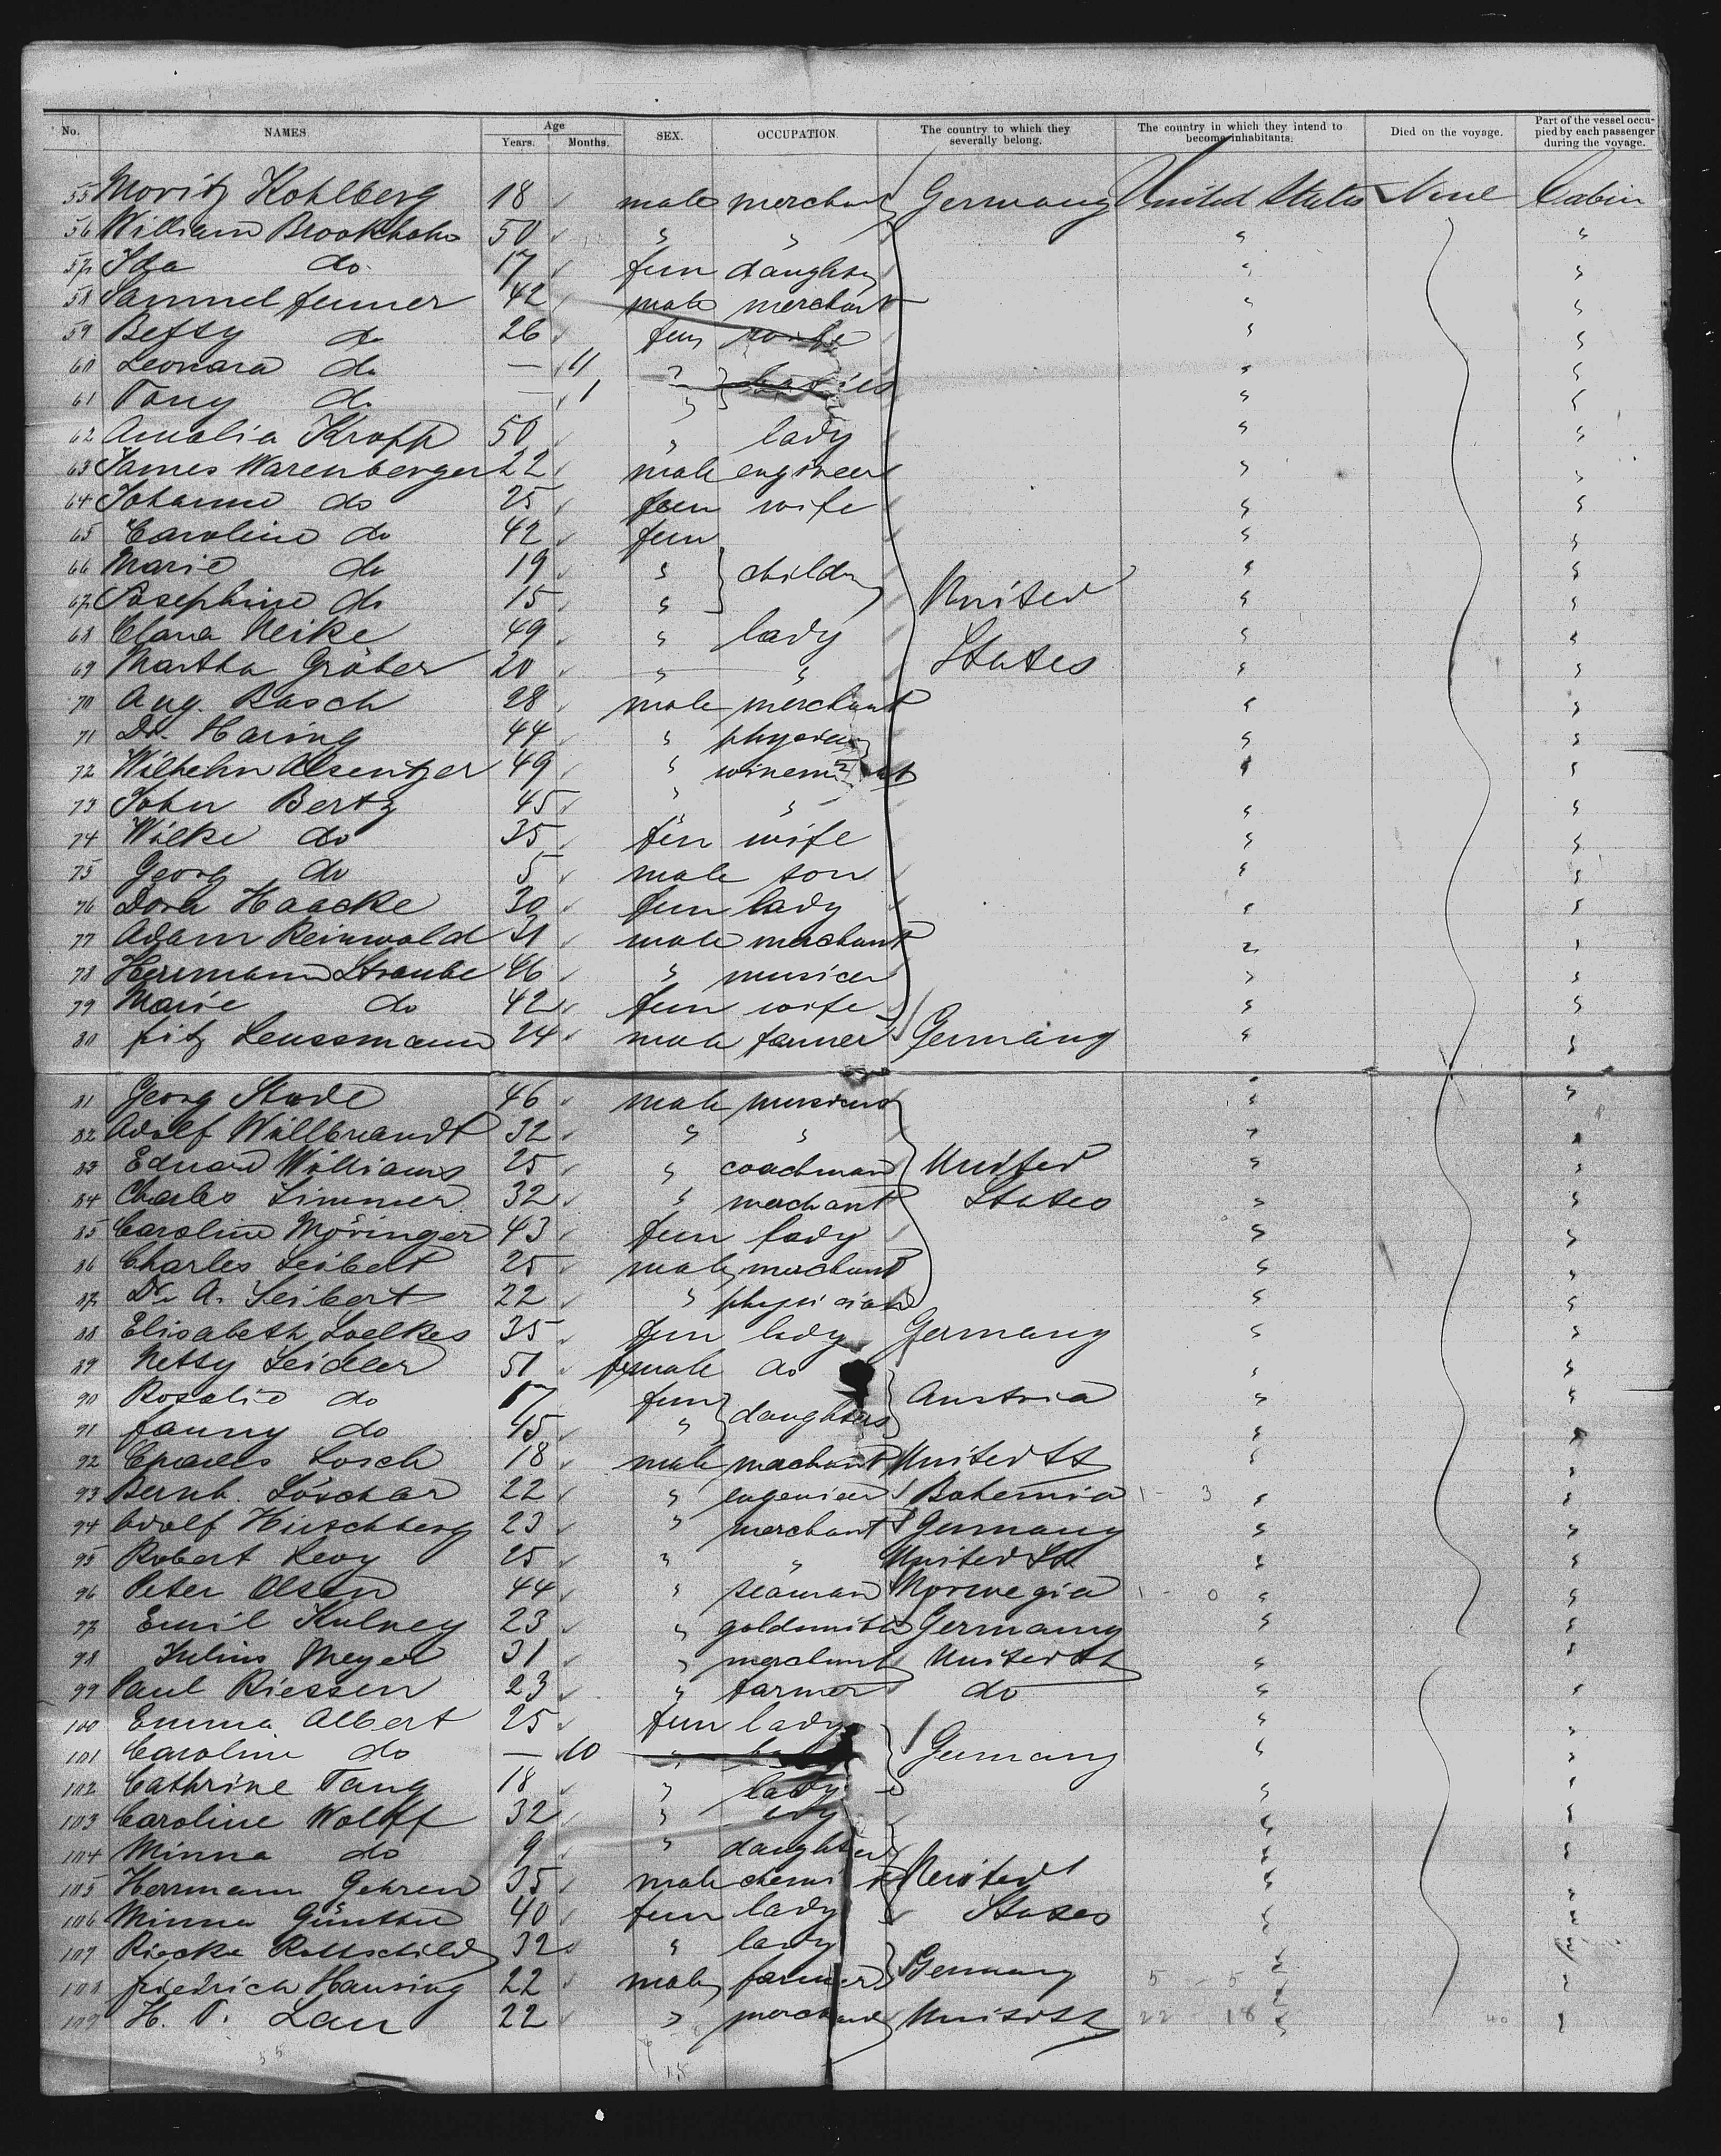 No. NAMES Age Years. Months. SEX. OCCUPATION. The country to which they severally belong. The country in which they intend to become inhabitants. Died on the voyage. Part of the vessel occupied by each passenger during the voyage.
55 Moritz Kohlberg 18 male merchant Germany United States None Cabin
56 William 50 " " " "
57 Ida do 17 fem daughter " "
58 Samuel 42 male merchant " "
59 Betsy do 26 fem wife " "
60 Leonara do — 11 " babies " "
61 Tony do — 1 " " "
62 Amalia Kropp 50 " lady " "
63 James Warenberger 22 male engineer " "
64 Johanne do 25 fem wife " "
65 Caroline do 42 fem " "
66 Marie do 19 " childr " "
67 Josephine do 15 " United " "
68 Clara Heike 49 " lady States " "
69 Martha Gräber 20 " " " "
70 Aug. Rasch 28 male merchant " "
71 Dr. Haring 44 " " "
72 Wilhelm 49 " " "
73 John Bertz 45 " " " "
74 Wilke do 35 fem wife " "
75 Georg do 5 male son " "
76 Dora Haacke 30 fem lady " "
77 Adam Reinwald 31 male merchant " "
78 Herrmann Straube 46 " " "
79 Marie do 42 fem wife " "
80 fritz Leussmann 24 male farmer Germany " "
81 Georg Stade 46 male " "
82 Adolf Willbrandt 32 " " " "
83 Eduard Williams 25 " coachman United " "
84 Charles 32 " merchant States " "
85 Caroline Möringer 43 fem lady " "
86 Charles Seibert 25 male merchant " "
87 Dr. A. Seibert 22 " physician " "
88 Elisabeth Loelkes 35 fem lady Germany " "
89 Netty Seidler 51 female do " "
90 Rosalie do 17 fem daughters Austria " "
91 fanny do 45 " " "
92 Charles Losch 18 male merchant United St " "
93 Bernh. 22 " Bohemia 1 - 3 " "
94 Adolf Hirschberg 23 " merchant Germany " "
95 Robert Levy 25 " " United St " "
96 Peter Olsen 44 " seaman Norwegia 1 - 0 " "
97 Emil Kulney 23 " goldsmith Germany " "
98 Julius Meyer 31 " merchant United St " "
99 Paul Riessen 23 " farmer do " "
100 Emma Albert 25 fem lady " "
101 Caroline do — 10 " Germany " "
102 Cathrine Tang 18 " lady " "
103 Caroline Wolff 32 " " "
104 Minna do 9 " daughter " "
105 Herrmann Gehren 35 male chemist United " "
106 Minna Günther 40 fem lady States " "
107 Riecke Rottschild 32 " lady " "
108 friedrich Hansing 22 male farmer Germany 5 - 5 " "
109 H. T. Lau 22 " merchant United St 22 18 " 40 "
55
15